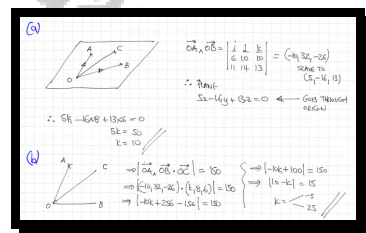 (a)
A
C
B
O
OA ∧ OB = | i j k | = (-10, 32, -26)
| 6 10 10 | SCALE TO
| 11 14 13 | (5, -16, 13)
∴ PLANE
5x - 16y + 13z = 0 ← GOES THROUGH
ORIGIN
∴ 5k - 16×8 + 13×6 = 0
5k = 50
k = 10
(b)
A
C
B
O
⇒ |OA ∧ OB · OC| = 150
⇒ |(-10, 32, -26) · (k, 8, 6)| = 150
⇒ |-10k + 256 - 156| = 150
⇒ |-10k + 100| = 150
⇒ |10 - k| = 15
k = -5
25